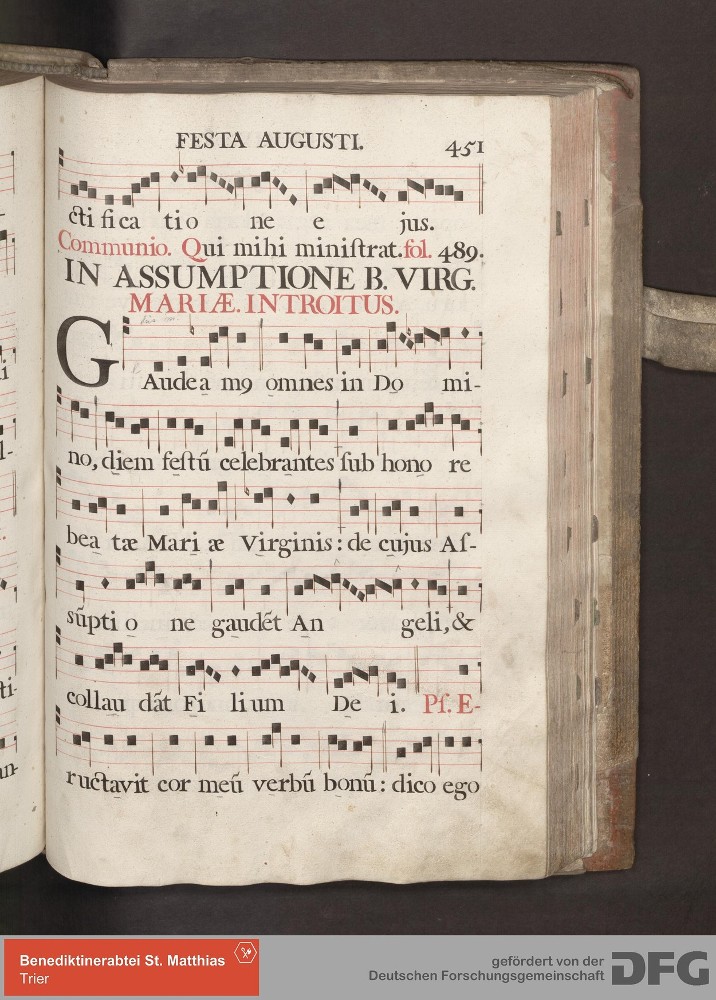 FESTA AUGUSTI. 451
cti fi ca ti o ne e jus.
Communio. Qui mihi miniſtrat. fol. 489.
IN ASSUMPTIONE B. VIRG.
MARIÆ. INTROITUS.
GAude a m9 omnes in Do mi-
no, diem feſtũ celebrantes ſub hono re
bea tæ Mari æ Virginis: de cujus Aſ-
sũpti o ne gaudẽt An geli, &
collau dãt Fi li um De i. Pſ. E-
ructavit cor meũ verbũ bonũ: dico ego
i
l-
ti-
an-
Benediktinerabtei St. Matthias
Trier
gefördert von der
Deutschen Forschungsgemeinschaft
DFG